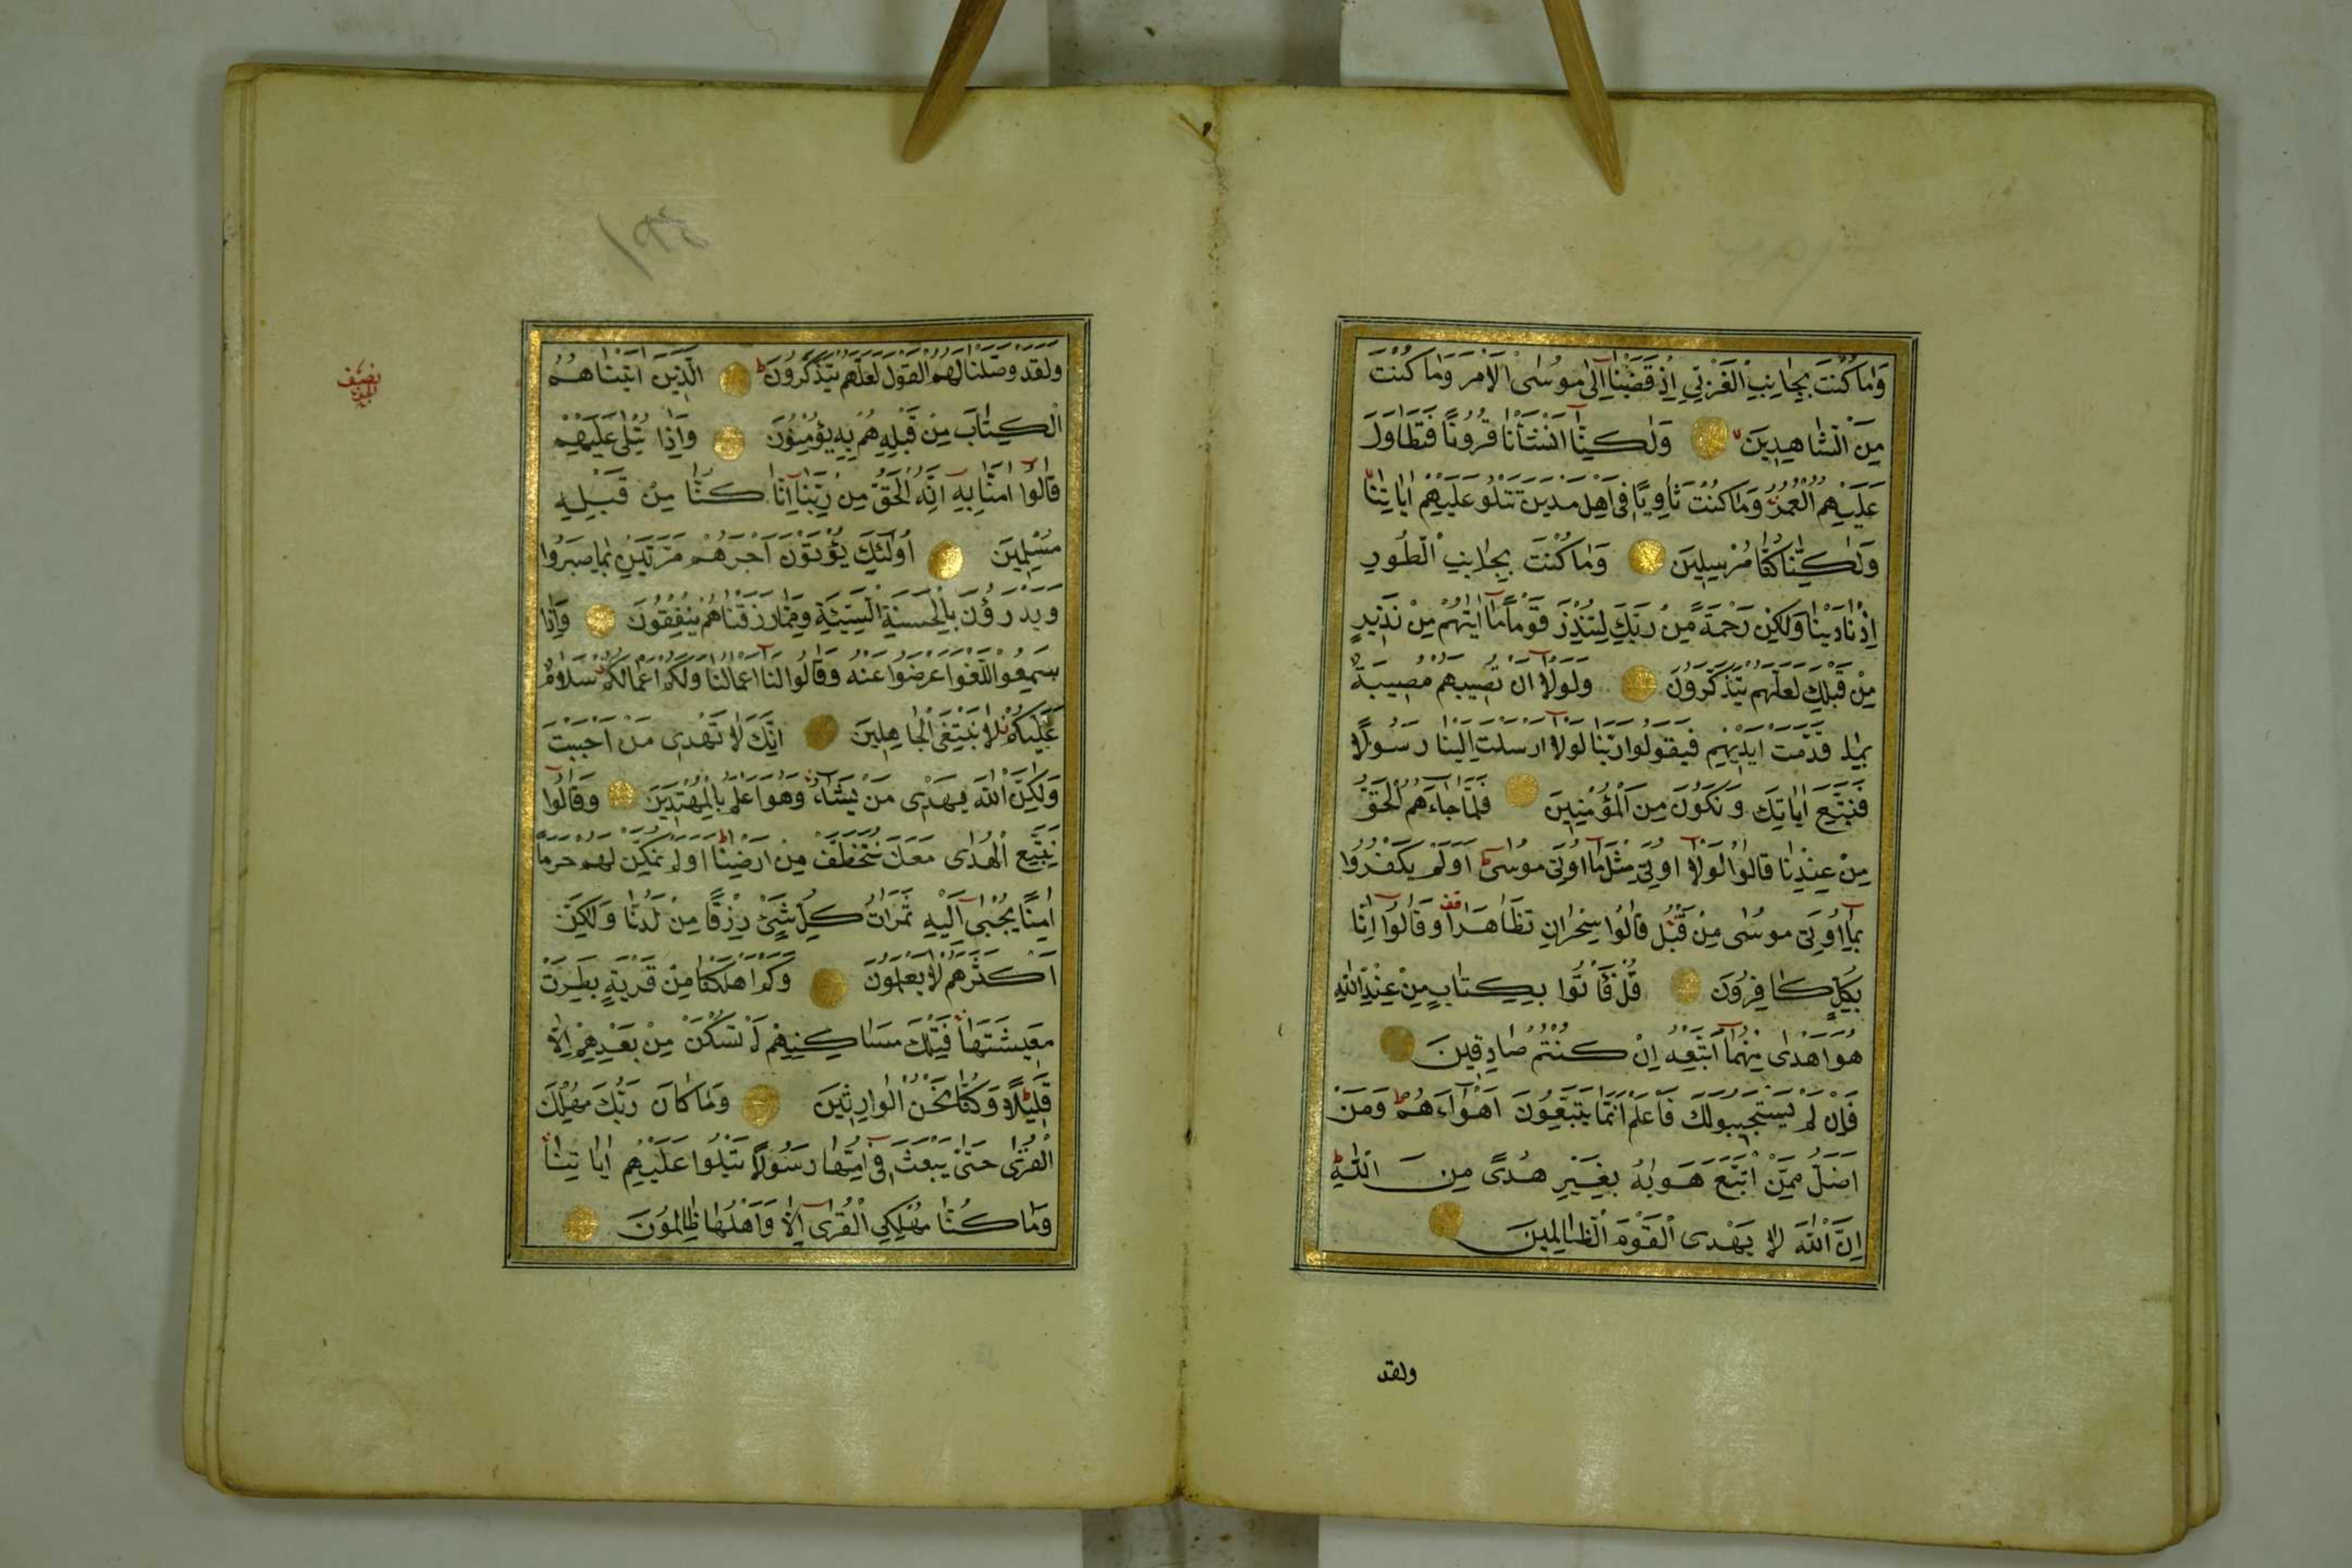 وَمَا كُنْتَ بِجَانِبِ الْغَرْبِيِّ اِذْ قَضَيْنَا اِلٰى مُوسَى الْاَمْرَ وَمَا كُنْتَ
مِنَ الشَّاهِدِينَ وَلٰكِنَّا اَنْشَأْنَا قُرُونًا فَتَطَاوَلَ
عَلَيْهِمُ الْعُمُرُ وَمَا كُنْتَ ثَاوِيًا فِى اَهْلِ مَدْيَنَ تَتْلُو عَلَيْهِمْ اٰيَاتِنَا
وَلٰكِنَّا كُنَّا مُرْسِلِينَ وَمَا كُنْتَ بِجَانِبِ الطُّورِ
اِذْ نَادَيْنَا وَلٰكِنْ رَحْمَةً مِنْ رَبِّكَ لِتُنْذِرَ قَوْمًا مَا اَتٰيهُمْ مِنْ نَذِيرٍ
مِنْ قَبْلِكَ لَعَلَّهُمْ يَتَذَكَّرُونَ وَلَوْلَا اَنْ تُصِيبَهُمْ مُصِيبَةٌ
بِمَا قَدَّمَتْ اَيْدِيهِمْ فَيَقُولُوا رَبَّنَا لَوْلَا اَرْسَلْتَ اِلَيْنَا رَسُولًا
فَنَتَّبِعَ اٰيَاتِكَ وَنَكُونَ مِنَ الْمُؤْمِنِينَ فَلَمَّا جَاءَهُمُ الْحَقُّ
مِنْ عِنْدِنَا قَالُوا لَوْلَا اُوتِىَ مِثْلَ مَا اُوتِىَ مُوسٰى اَوَلَمْ يَكْفُرُوا
بِمَا اُوتِىَ مُوسٰى مِنْ قَبْلُ قَالُوا سِحْرَانِ تَظَاهَرَا وَقَالُوا اِنَّا
بِكُلٍّ كَافِرُونَ قُلْ فَأْتُوا بِكِتَابٍ مِنْ عِنْدِ اللّٰهِ
هُوَ اَهْدٰى مِنْهُمَا اَتَّبِعْهُ اِنْ كُنْتُمْ صَادِقِينَ
فَاِنْ لَمْ يَسْتَجِيبُوا لَكَ فَاعْلَمْ اَنَّمَا يَتَّبِعُونَ اَهْوَاءَهُمْ وَمَنْ
اَضَلُّ مِمَّنِ اتَّبَعَ هَوٰيهُ بِغَيْرِ هُدًى مِنَ اللّٰهِ
اِنَّ اللّٰهَ لَا يَهْدِى الْقَوْمَ الظَّالِمِينَ
ولقد
نصف
وَلَقَدْ وَصَّلْنَا لَهُمُ الْقَوْلَ لَعَلَّهُمْ يَتَذَكَّرُونَ اَلَّذِينَ اٰتَيْنَاهُمُ
الْكِتَابَ مِنْ قَبْلِهِ هُمْ بِهِ يُؤْمِنُونَ وَاِذَا يُتْلٰى عَلَيْهِمْ
قَالُوا اٰمَنَّا بِهِ اِنَّهُ الْحَقُّ مِنْ رَبِّنَا اِنَّا كُنَّا مِنْ قَبْلِهِ
مُسْلِمِينَ اُولٰئِكَ يُؤْتَوْنَ اَجْرَهُمْ مَرَّتَيْنِ بِمَا صَبَرُوا
وَيَدْرَؤُنَ بِالْحَسَنَةِ السَّيِّئَةَ وَمِمَّا رَزَقْنَاهُمْ يُنْفِقُونَ وَاِذَا
سَمِعُوا اللَّغْوَ اَعْرَضُوا عَنْهُ وَقَالُوا لَنَا اَعْمَالُنَا وَلَكُمْ اَعْمَالُكُمْ سَلَامٌ
عَلَيْكُمْ لَا نَبْتَغِى الْجَاهِلِينَ اِنَّكَ لَا تَهْدِى مَنْ اَحْبَبْتَ
وَلٰكِنَّ اللّٰهَ يَهْدِى مَنْ يَشَاءُ وَهُوَ اَعْلَمُ بِالْمُهْتَدِينَ وَقَالُوا
نَتَّبِعِ الْهُدٰى مَعَكَ نُتَخَطَّفْ مِنْ اَرْضِنَا اَوَلَمْ نُمَكِّنْ لَهُمْ حَرَمًا
اٰمِنًا يُجْبٰى اِلَيْهِ ثَمَرَاتُ كُلِّ شَىْءٍ رِزْقًا مِنْ لَدُنَّا وَلٰكِنَّ
اَكْثَرَهُمْ لَا يَعْلَمُونَ وَكَمْ اَهْلَكْنَا مِنْ قَرْيَةٍ بَطِرَتْ
مَعِيشَتَهَا فَتِلْكَ مَسَاكِنُهُمْ لَمْ تُسْكَنْ مِنْ بَعْدِهِمْ اِلَّا
قَلِيلًا وَكُنَّا نَحْنُ الْوَارِثِينَ وَمَا كَانَ رَبُّكَ مُهْلِكَ
الْقُرٰى حَتّٰى يَبْعَثَ فِى اُمِّهَا رَسُولًا يَتْلُوا عَلَيْهِمْ اٰيَاتِنَا
وَمَا كُنَّا مُهْلِكِى الْقُرٰى اِلَّا وَاَهْلُهَا ظَالِمُونَ